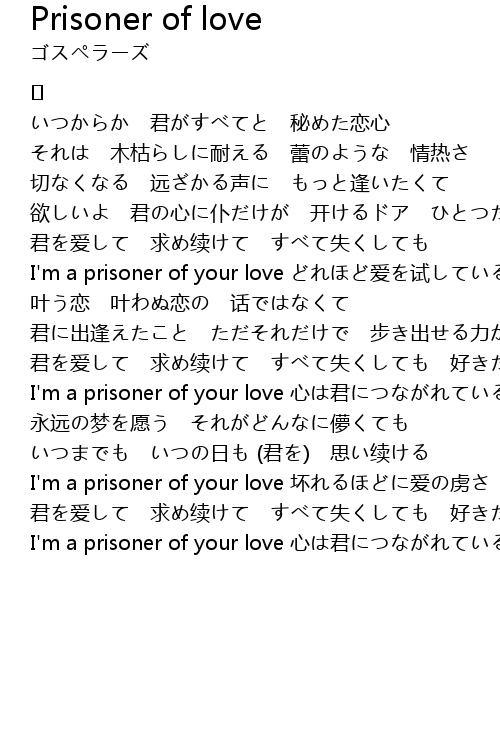 Prisoner of love
ゴスペラーズ
[]
いつからか　君がすべてと　秘めた恋心
それは　木枯らしに耐える　蕾のような　情热さ
切なくなる　远ざかる声に　もっと逢いたくて
欲しいよ　君の心に仆だけが　开けるドア　ひとつだ
君を爱して　求め续けて　すべて失くしても
I'm a prisoner of your love どれほど爱を试している
叶う恋　叶わぬ恋の　话ではなくて
君に出逢えたこと　ただそれだけで　歩き出せる力が
君を爱して　求め续けて　すべて失くしても　好きだ
I'm a prisoner of your love 心は君につながれている
永远の梦を愿う　それがどんなに儚くても
いつまでも　いつの日も (君を)　思い续ける
I'm a prisoner of your love 坏れるほどに爱の虏さ
君を爱して　求め续けて　すべて失くしても　好きだ
I'm a prisoner of your love 心は君につながれている